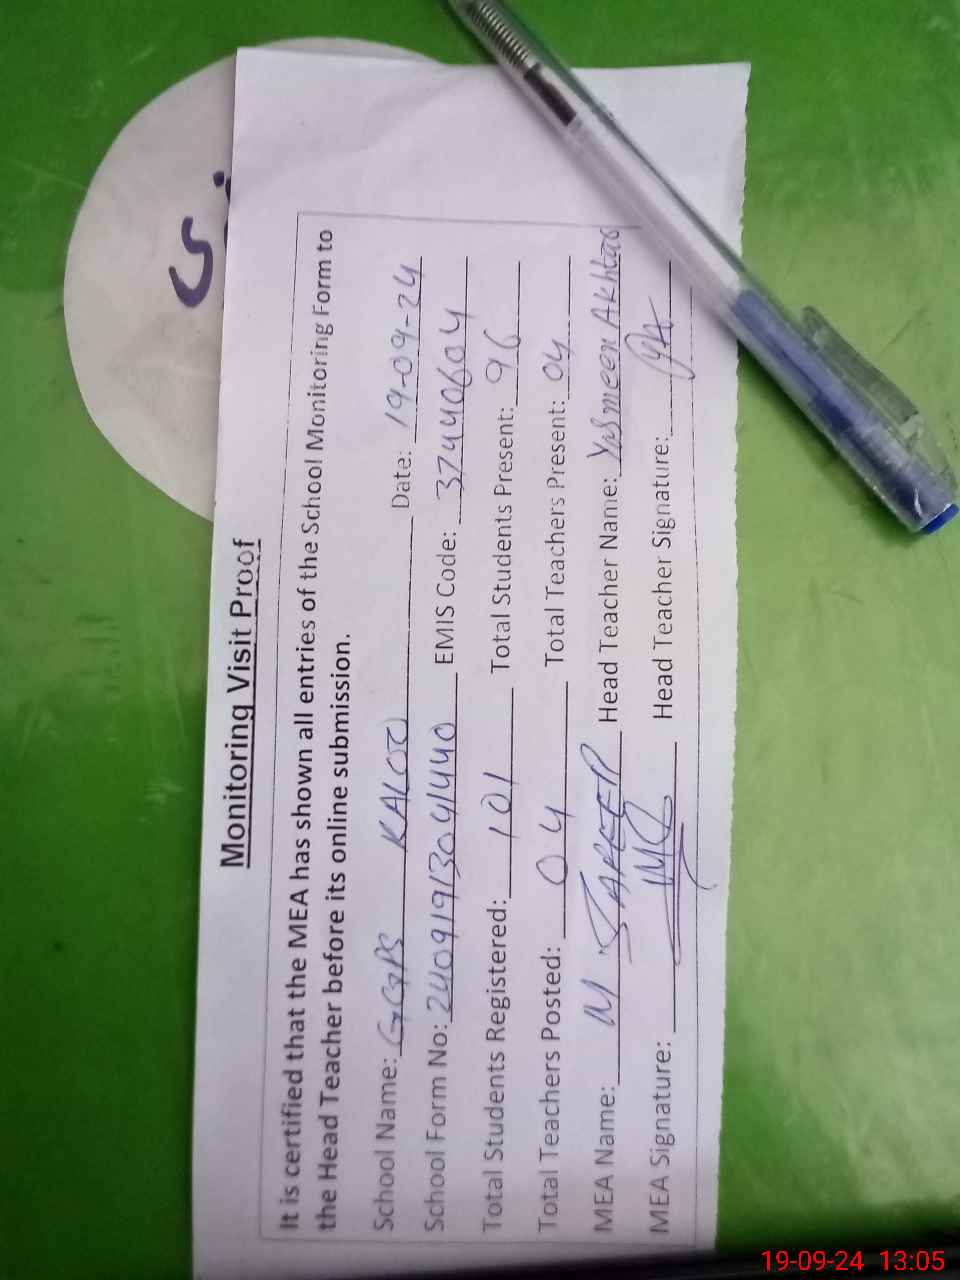 Monitoring Visit Proof
It is certified that the MEA has shown all entries of the School Monitoring Form to
the Head Teacher before its online submission.
School Name: GGPS KALOT Date: 19-09-24
School Form No: 24091913041440 EMIS Code: 37440604
Total Students Registered: 101 Total Students Present: 96
Total Teachers Posted: 04 Total Teachers Present: 04
MEA Name: M Head Teacher Name: Yasmeen Akhtar
MEA Signature: Head Teacher Signature: YA
19-09-24 13:05